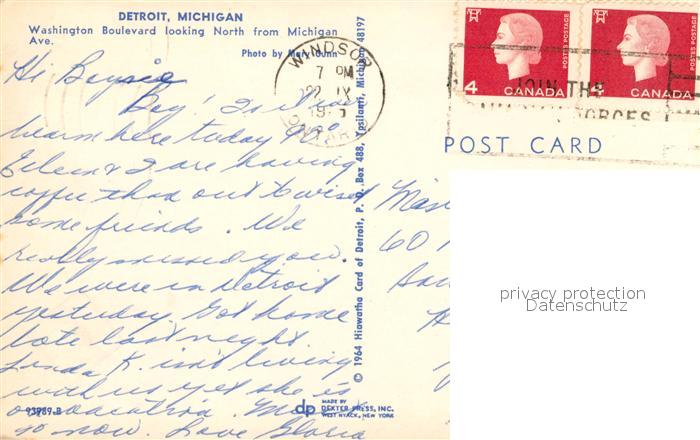 DETROIT, MICHIGAN
Washington Boulevard looking North from Michigan
Ave.
Photo by Mary Gunn
Hi Boysie
Boy! Is it ever
warm here today 90°
Eileen & I are having
coffee then out to visit
some friends. We
really missed you.
We were in Detroit
yesterday. Got home
late last night
Linda K. isn't living
with us yet she is
on vacation. Must
go now. Love Gloria
93989-B
© 1964 Hiawatha Card of Detroit, P. O. Box 488, Ypsilanti, Michigan 48197
dp MADE BY
DEXTER PRESS, INC.
WEST NYACK, NEW YORK
WINDSOR
7 PM
IX
ONTARIO
JOIN THE
FORCES
4 CANADA
POSTES POSTAGE
4 CANADA
POSTES POSTAGE
POST CARD
60
privacy protection
Datenschutz